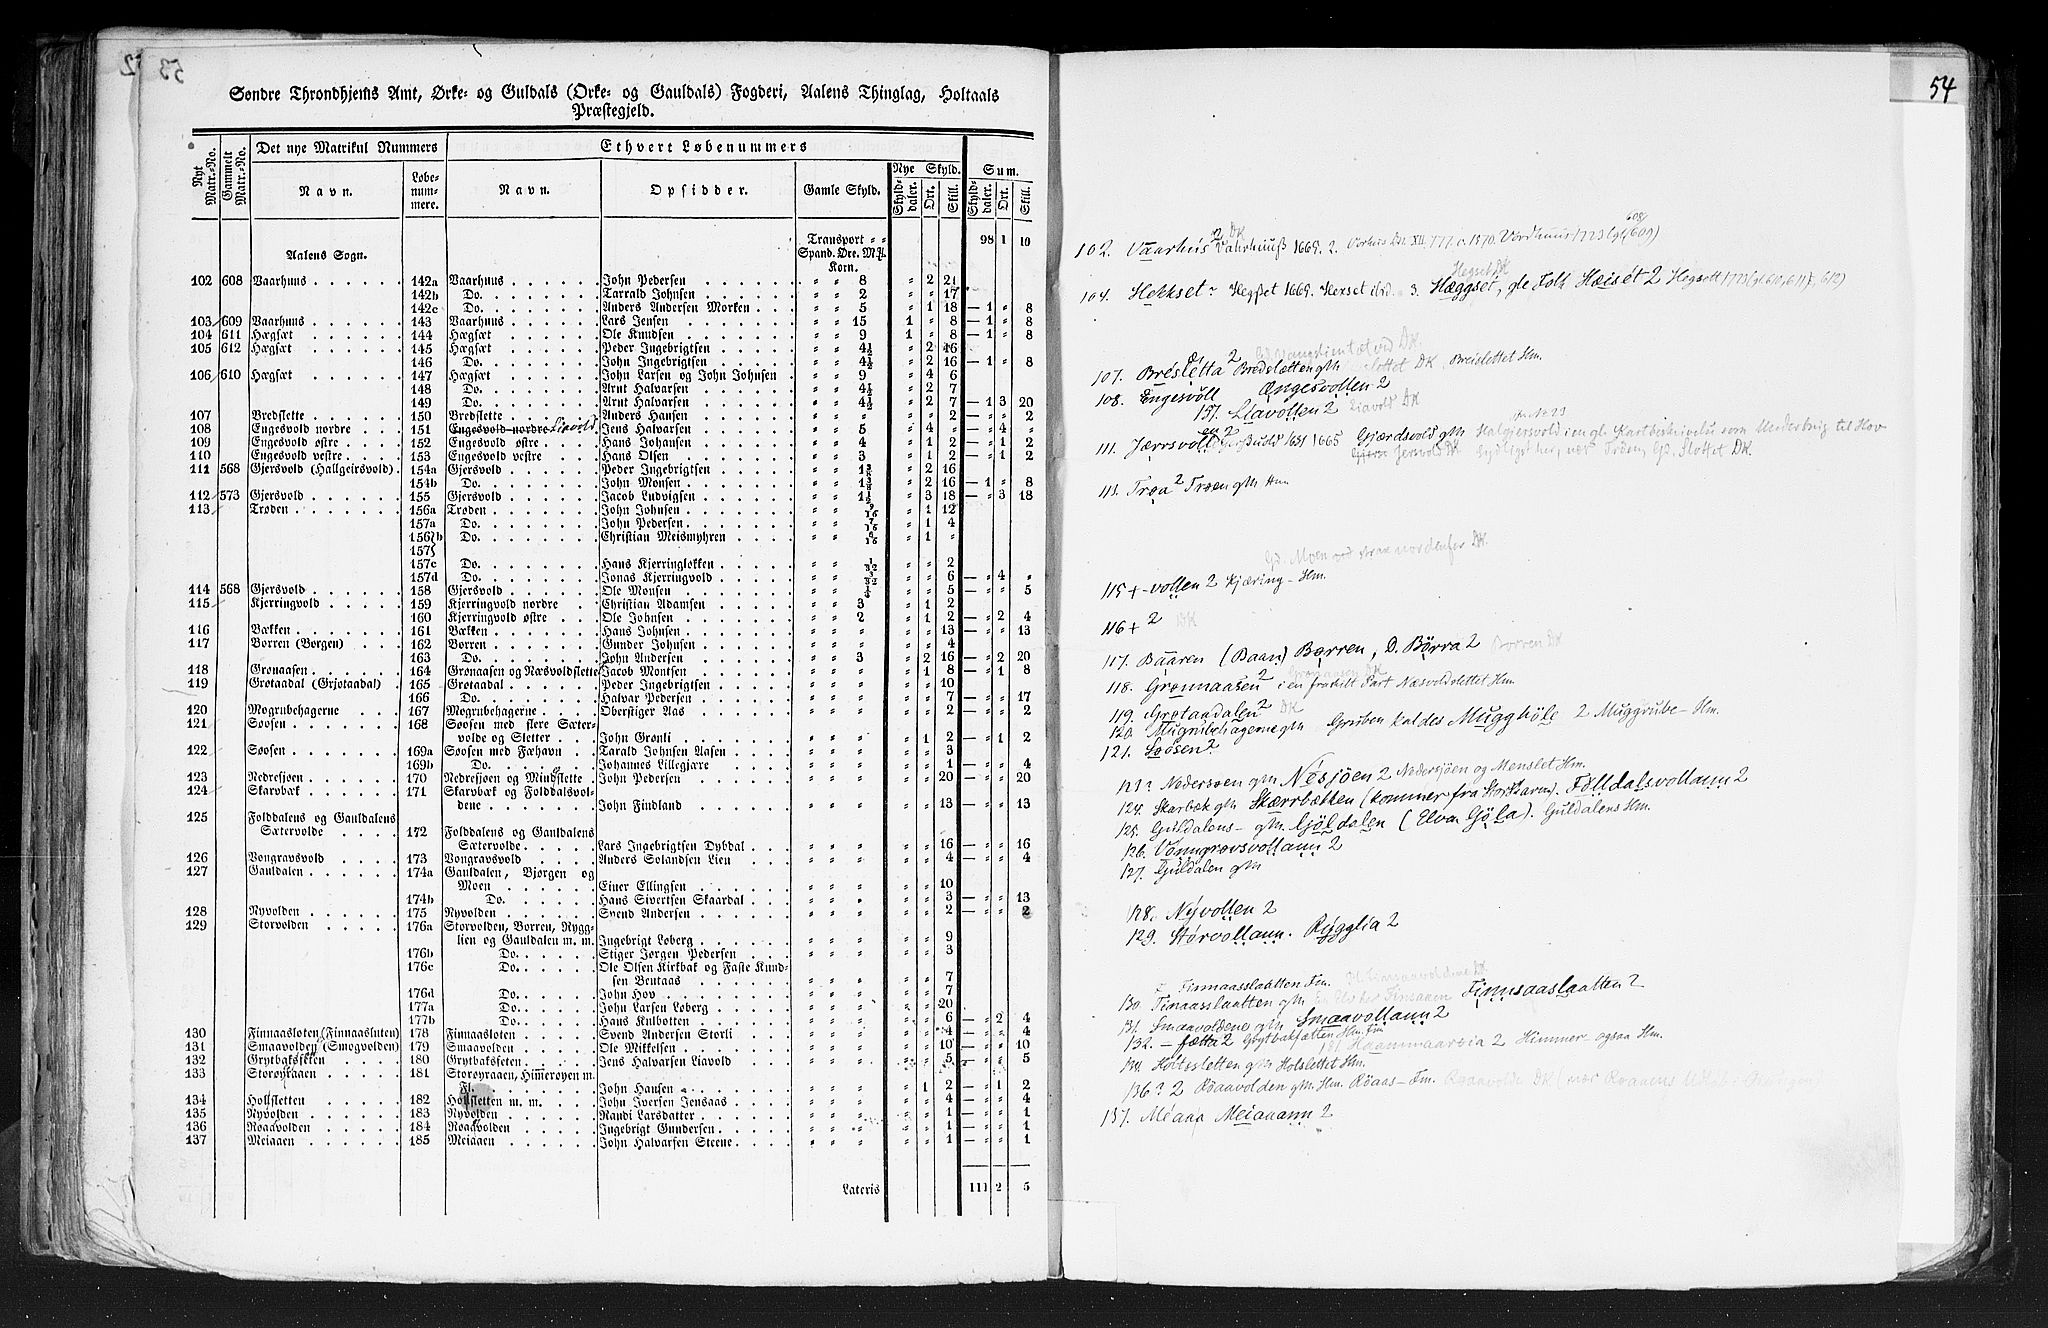 Søndre Throndhjems Amt, Ørke- og Guldals (Orke- og Gauldals) Fogderi, Aalens Thinglag, Holtaals
Præstegjeld.
Nyt Matr.-No. Gammelt Matr.-No. Det nye Matrikul Nummers Ethvert Løbenummers
Navn. Løbenummere. Navn. Opsidder. Gamle Skyld. Nye Skyld. Skylddaler. Ort. Skill. Sum. Skylddaler. Ort. Skill.
Transport 98 1 10
Aalens Sogn. Spand. Øre. M℔.
Korn.
102 608 Vaarhuus 142a Vaarhuus John Pedersen " " 8 " 2 21
142b Do. Tarrald Johnsen " " 2 " " 17
142c Do. Anders Andersen Morken " " 5 " 1 18 — 1 " 8
103 609 Vaarhuus 143 Vaarhuus Lars Jensen " " 15 1 " 8 — 1 " 8
104 611 Hægsæt 144 Hægsæt Ole Knudsen " " 9 1 " 8 — 1 " 8
105 612 Hægsæt 145 Hægsæt Peder Ingebrigtsen " " 4½ " 2 16
146 Do. John Ingebrigtsen " " 4½ " 2 16 — 1 " 8
106 610 Hægsæt 147 Hægsæt John Larsen og John Johnsen " " 9 " 4 6
148 Do. Arnt Halvarsen " " 4½ " 2 7
149 Do. Arnt Halvarsen " " 4½ " 2 7 — 1 3 20
107 Bredslette 150 Bredslette Anders Hansen " " " " " 2 — " " 2
108 Engesvold nordre 151 Engesvold nordre Liavold Jens Halvarsen " " 5 " 4 " — " 4 "
109 Engesvold østre 152 Engesvold østre Hans Johansen " " 4 " 1 2 — " 1 2
110 Engesvold vestre 153 Engesvold vestre Hans Olsen " " 3 " 1 2 — " 1 2
111 568 Gjersvold (Hallgeirsvold) 154a Gjersvold Peder Ingebrigtsen " " " 2 16
154b Do. John Monsen " " " 2 16 — 1 " 8
112 573 Gjersvold 155 Gjersvold Jacob Ludvigsen " " 1½ " 3 18 — " 3 18
113 Trøden 156a Trøden John Johnsen " " 9/16 " 1 12
157a Do. John Pedersen " " 7/16 " 1 4
156b Do. Christian Meismyhren " " 6/16 " 1 "
157
157c Do. Hans Kjerringløkken " " " " 2
157d Do. Jonas Kjerringvold " " " " 6 — " 4 "
114 568 Gjersvold 158 Gjersvold Ole Monsen " " " " 5 — " " 5
115 Kjerringvold 159 Kjerringvold nordre Christian Adamsen " " 3 " 1 2
160 Kjerringvold østre Ole Johnsen " " 2 " 1 2 — " 2 4
116 Bækken 161 Bækken Hans Johnsen " " " " " 13 — " " 13
117 Borren (Borgen) 162 Borren Gunder Johnsen " " " " " 4
163 Do. John Andersen " " 3 " 2 16 — " 2 20
118 Grønaasen 164 Grønaasen og Næsvoldslette Jacob Montsen " " " " 1 8 — " 1 8
119 Grøtaadal (Grjotaadal) 165 Grøtaadal Peder Ingebrigtsen " " " " " 10
166 Do. Halvar Pedersen " " " " " 7 — " " 17
120 Mogrubehagerne 167 Mogrubehagerne Oberstiger Aas " " " " " 2 — " " 2
121 Søosen 168 Søosen med flere Sæter-
volde og Sletter John Grønli " " " " 1 2 — " 1 2
122 Søosen 169a Søosen med Fæhavn Tarald Johnsen Aasen " " " " " 3
169b Do. Johannes Lillegjære " " " " " 1 — " " 4
123 Nedresjøen 170 Nedresjøen og Mindslette John Pedersen " " " " " 20 — " " 20
124 Skarvbæk 171 Skarvbæk og Folddalsvol-
dene John Findland " " " " " 13 — " " 13
125 Folddalens og Gauldalens
Sætervolde 172 Folddalens og Gauldalens
Sætervolde Lars Ingebrigtsen Dybdal " " " " " 16 — " " 16
126 Vongravsvold 173 Vongravsvold Anders Solandsen Lien " " " " " 4 — " " 4
127 Gauldalen 174a Gauldalen, Bjørgen og
Moen Einer Ellingsen " " " " " 10
174b Do. Hans Sivertsen Skaardal " " " " " 3 — " " 13
128 Nyvolden 175 Nyvolden Svend Andersen " " " " " 2 — " " 2
129 Storvolden 176a Storvolden, Borren, Rygg-
lien og Gauldalen m. m. Ingebrigt Løberg " " " " " 9
176b Do. Stiger Jørgen Pedersen " " " " " 3
176c Do. Ole Olsen Kirkbak og Faste Knud-
sen Bentaas " " " " " 7
176d Do. John Hov " " " " " 7
177a Do. John Larsen Løberg " " " " " 20
177b Do. Hans Kulbotten " " " " " 6 — " 2 4
130 Finnaasløten (Finnaasluten) 178 Finnaasløten Svend Andersen Storli " " " " " 4 — " " 4
131 Smaavolden (Smogvolden) 179 Smaavolden Ole Mikkelsen " " " " " 10 — " " 10
132 Grytbaksfeten 180 Grytbaksfeten Jens Halvarsen Liavold " " " " " 5 — " " 5
133 Storøyraaen 181 Storøyraaen, Himmerøyen m.
Fl. John Hansen " " " " 1 2 — " 1 2
134 Holtsletten 182 Holtsletten m. m. John Iversen Jensaas " " " " " 4 — " " 4
135 Nyvolden 183 Nyvolden Randi Larsdatter " " " " " 1 — " " 1
136 Roaavolden 184 Roaavolden Ingebrigt Gundersen " " " " " 1 — " " 1
137 Meiaaen 185 Meiaaen John Halvarsen Steene " " " " " 1 — " " 1
Lateris 111 2 5
54
608/
2 DK
102. Vaarhus Vahrhuuß 1669. 2. Vordhuus 1723 (gl. 609)
Hegset DK
104. Hekkset Hegßet 1669. Hexset ibid. 3. Hæggset, gle Folk Hæiset 2 Hegsett 1723 (gl 610, 611, 612)
107. Bresletta 2 Bredsletten gM DK, Breislettet Hm.
108. Engesvoll Ængesvollen 2
151. Liavollen 2 Liavold DK
111. Jærrsvoll 1631 1665 Gjærdsvold gM Halgjersvold i en gl. Kartbeskrivelse som Underbrug til Hov
Jersvold DK sydligst her, nær Trøen, Gd. Slottet DK.
113. Trøa 2 Trøen gM Hm
Gd. Moen ved Elven nordenfor DK.
115 + -vollen 2 Kjæring- Hm.
116 + 2 DK
117. Baaren (Baan) Børren, D. Børra 2 Borren DK
Grønaasen DK
118. Grønnaasen 2 i en fraskilt Part Næsvoldslettet Hm
119. Grøtaadalen 2 DK
120. Mugrubehagerne gM Gruben kaldes Mugghøle 2 Muggrube- Hm.
121. Søosen 2
123? Nedersøen gM Nésjøen 2 Nedersjöen og Menslet Hm.
124. Skarbæk gM Skærrbækken (kommer fra StorSkarven). Fölldalsvollann 2
125. Guldalens- gM Gjöldalen (Elva Gjöla). Guldalens Hm.
126. Vonngravsvollann 2
127. Guldalen gM
128. Nyvollen 2
129. Størvollann. Rygglia 2
Finnaasslaatten Fm.
130. Finaasslaatten gM Finnsaaslaatten 2
131. Smaavoldene gM Smaavollann 2
132. -fætta 2 Grytbakfætten Hm. Fm
133 Haammaarøia 2 Himmer- ogsaa Hm.
134. Holtesletten gM Holslettet Hm.
136? 2 Röaavolden gM Hm. Röaas- Fm. Roaavolde DK
137. Méaaa Meiaaann 2